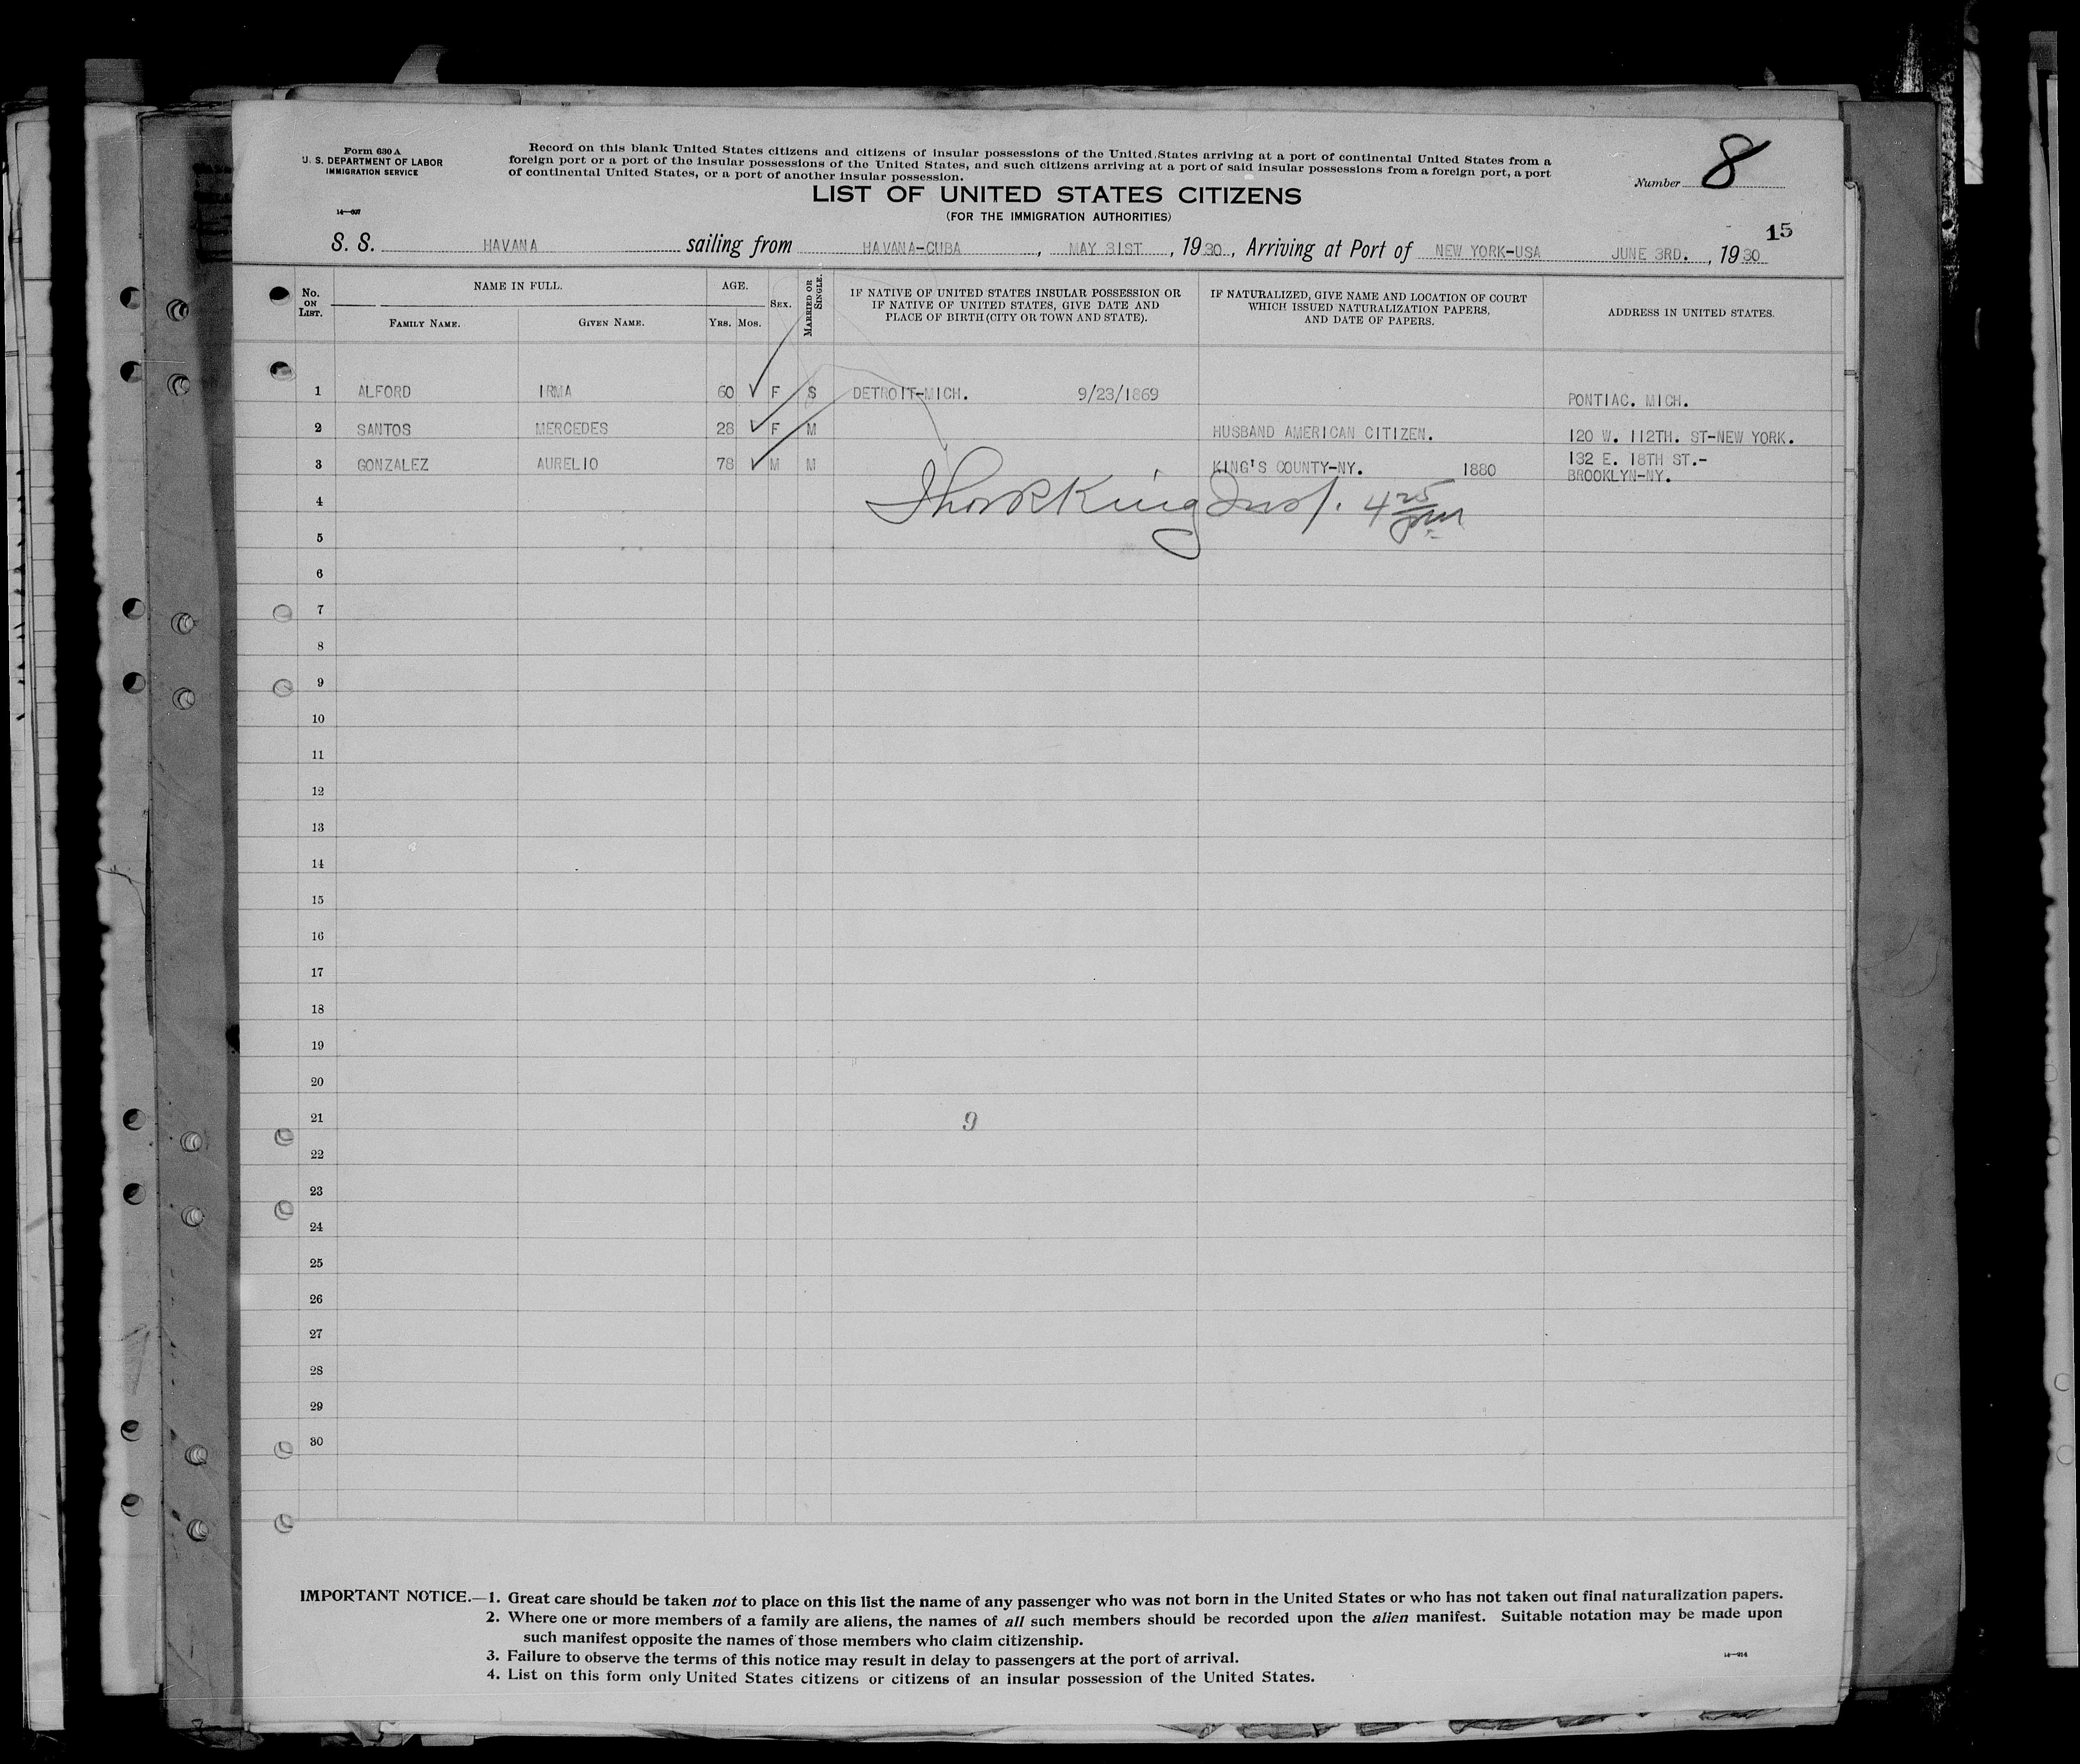 Form 630 A
U. S. DEPARTMENT OF LABOR
IMMIGRATION SERVICE
14—607
Record on this blank United States citizens and citizens of insular possessions of the United States arriving at a port of continental United States from a
foreign port or a port of the insular possessions of the United States, and such citizens arriving at a port of said insular possessions from a foreign port, a port
of continental United States, or a port of another insular possession.
LIST OF UNITED STATES CITIZENS
(FOR THE IMMIGRATION AUTHORITIES)
Number 8
15
S. S. HAVANA sailing from HAVANA-CUBA, MAY 31ST, 1930, Arriving at Port of NEW YORK-USA JUNE 3RD., 1930
No. ON LIST. NAME IN FULL. AGE. SEX. MARRIED OR SINGLE. IF NATIVE OF UNITED STATES INSULAR POSSESSION OR IF NATIVE OF UNITED STATES, GIVE DATE AND PLACE OF BIRTH (CITY OR TOWN AND STATE). IF NATURALIZED, GIVE NAME AND LOCATION OF COURT WHICH ISSUED NATURALIZATION PAPERS, AND DATE OF PAPERS. ADDRESS IN UNITED STATES.
FAMILY NAME. GIVEN NAME. YRS. MOS.
1 ALFORD IRMA 60 F S DETROIT-MICH. 9/23/1869 PONTIAC. MICH.
2 SANTOS MERCEDES 28 F M HUSBAND AMERICAN CITIZEN. 120 W. 112TH. ST-NEW YORK.
3 GONZALEZ AURELIO 78 M M KING'S COUNTY-NY. 1880 132 E. 18TH ST.-
BROOKLYN-NY.
4 King Insp. 4 25 pm
5
6
7
8
9
10
11
12
13
14
15
16
17
18
19
20
21
9
22
23
24
25
26
27
28
29
30
IMPORTANT NOTICE.—1. Great care should be taken not to place on this list the name of any passenger who was not born in the United States or who has not taken out final naturalization papers.
2. Where one or more members of a family are aliens, the names of all such members should be recorded upon the alien manifest. Suitable notation may be made upon
such manifest opposite the names of those members who claim citizenship.
3. Failure to observe the terms of this notice may result in delay to passengers at the port of arrival.
4. List on this form only United States citizens or citizens of an insular possession of the United States.